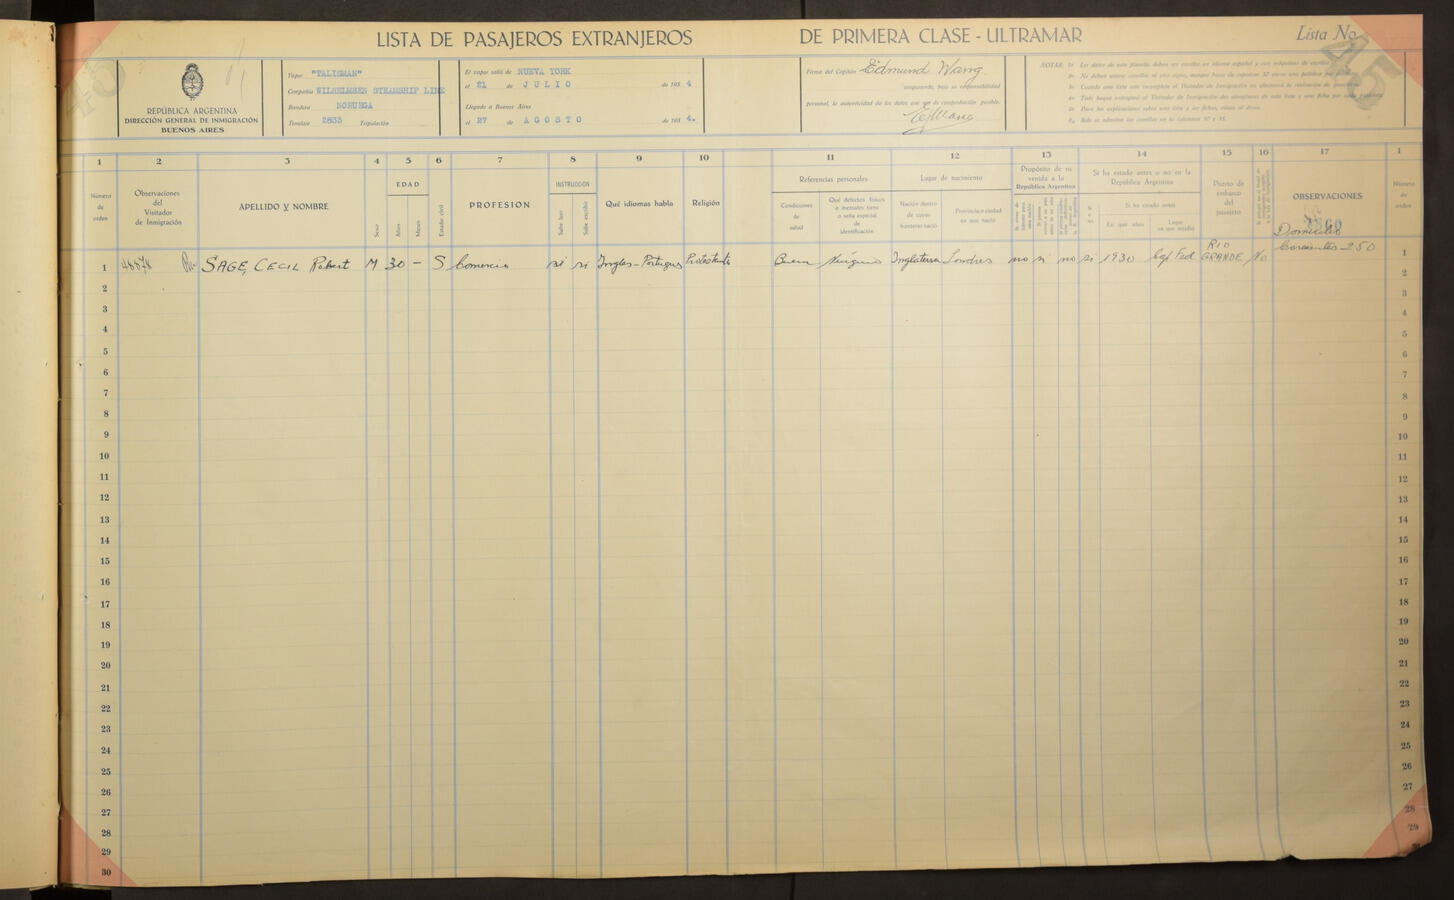 LISTA DE PASAJEROS EXTRANJEROS DE PRIMERA CLASE - ULTRAMAR Lista No.
45
REPÚBLICA ARGENTINA
DIRECCIÓN GENERAL DE INMIGRACIÓN
BUENOS AIRES
Vapor "TALISMAN"
Compañía WILHELMSEN STEAMSHIP LINE
Bandera NORUEGA
Tonelaje 2835 Tripulación
El vapor salió de NUEVA YORK
el 21 de JULIO de 193 4
Llegado a Buenos Aires
el 27 de AGOSTO de 193 4.
Firma del Capitán Edmund Wang
asegurando, bajo su responsabilidad
personal, la autenticidad de los datos que son de comprobación posible.
NOTAS:
1 2 3 4 5 6 7 8 9 10 11 12 13 14 15 16 17 1
Número de orden
Observaciones del Visitador de Inmigración
APELLIDO Y NOMBRE
Sexo
EDAD
Años
Meses
Estado civil
PROFESION
INSTRUCCIÓN
Sabe leer
Sabe escribir
Qué idiomas habla
Religión
Referencias personales
Condiciones de salud
Qué defectos físicos o mentales tiene o seña especial de identificación
Lugar de nacimiento
Nación dentro de cuyas fronteras nació
Provincia o ciudad en que nació
Propósito de su venida a la República Argentina
Si ha estado antes o no en la República Argentina
Si ha estado antes
En que años
Lugar en que residió
Puerto de embarco del pasajero
OBSERVACIONES
Número de orden
Domicilio
Corrientes 250
1 SAGE, CECIL Robert M 30 - S Comercio si si Ingles-Portugues Protestante Buena Ninguno Inglaterra Londres no si no si 1930 Cap Fed RIO GRANDE No 1
2 2
3 3
4 4
5 5
6 6
7 7
8 8
9 9
10 10
11 11
12 12
13 13
14 14
15 15
16 16
17 17
18 18
19 19
20 20
21 21
22 22
23 23
24 24
25 25
26 26
27 27
28 28
29 29
30